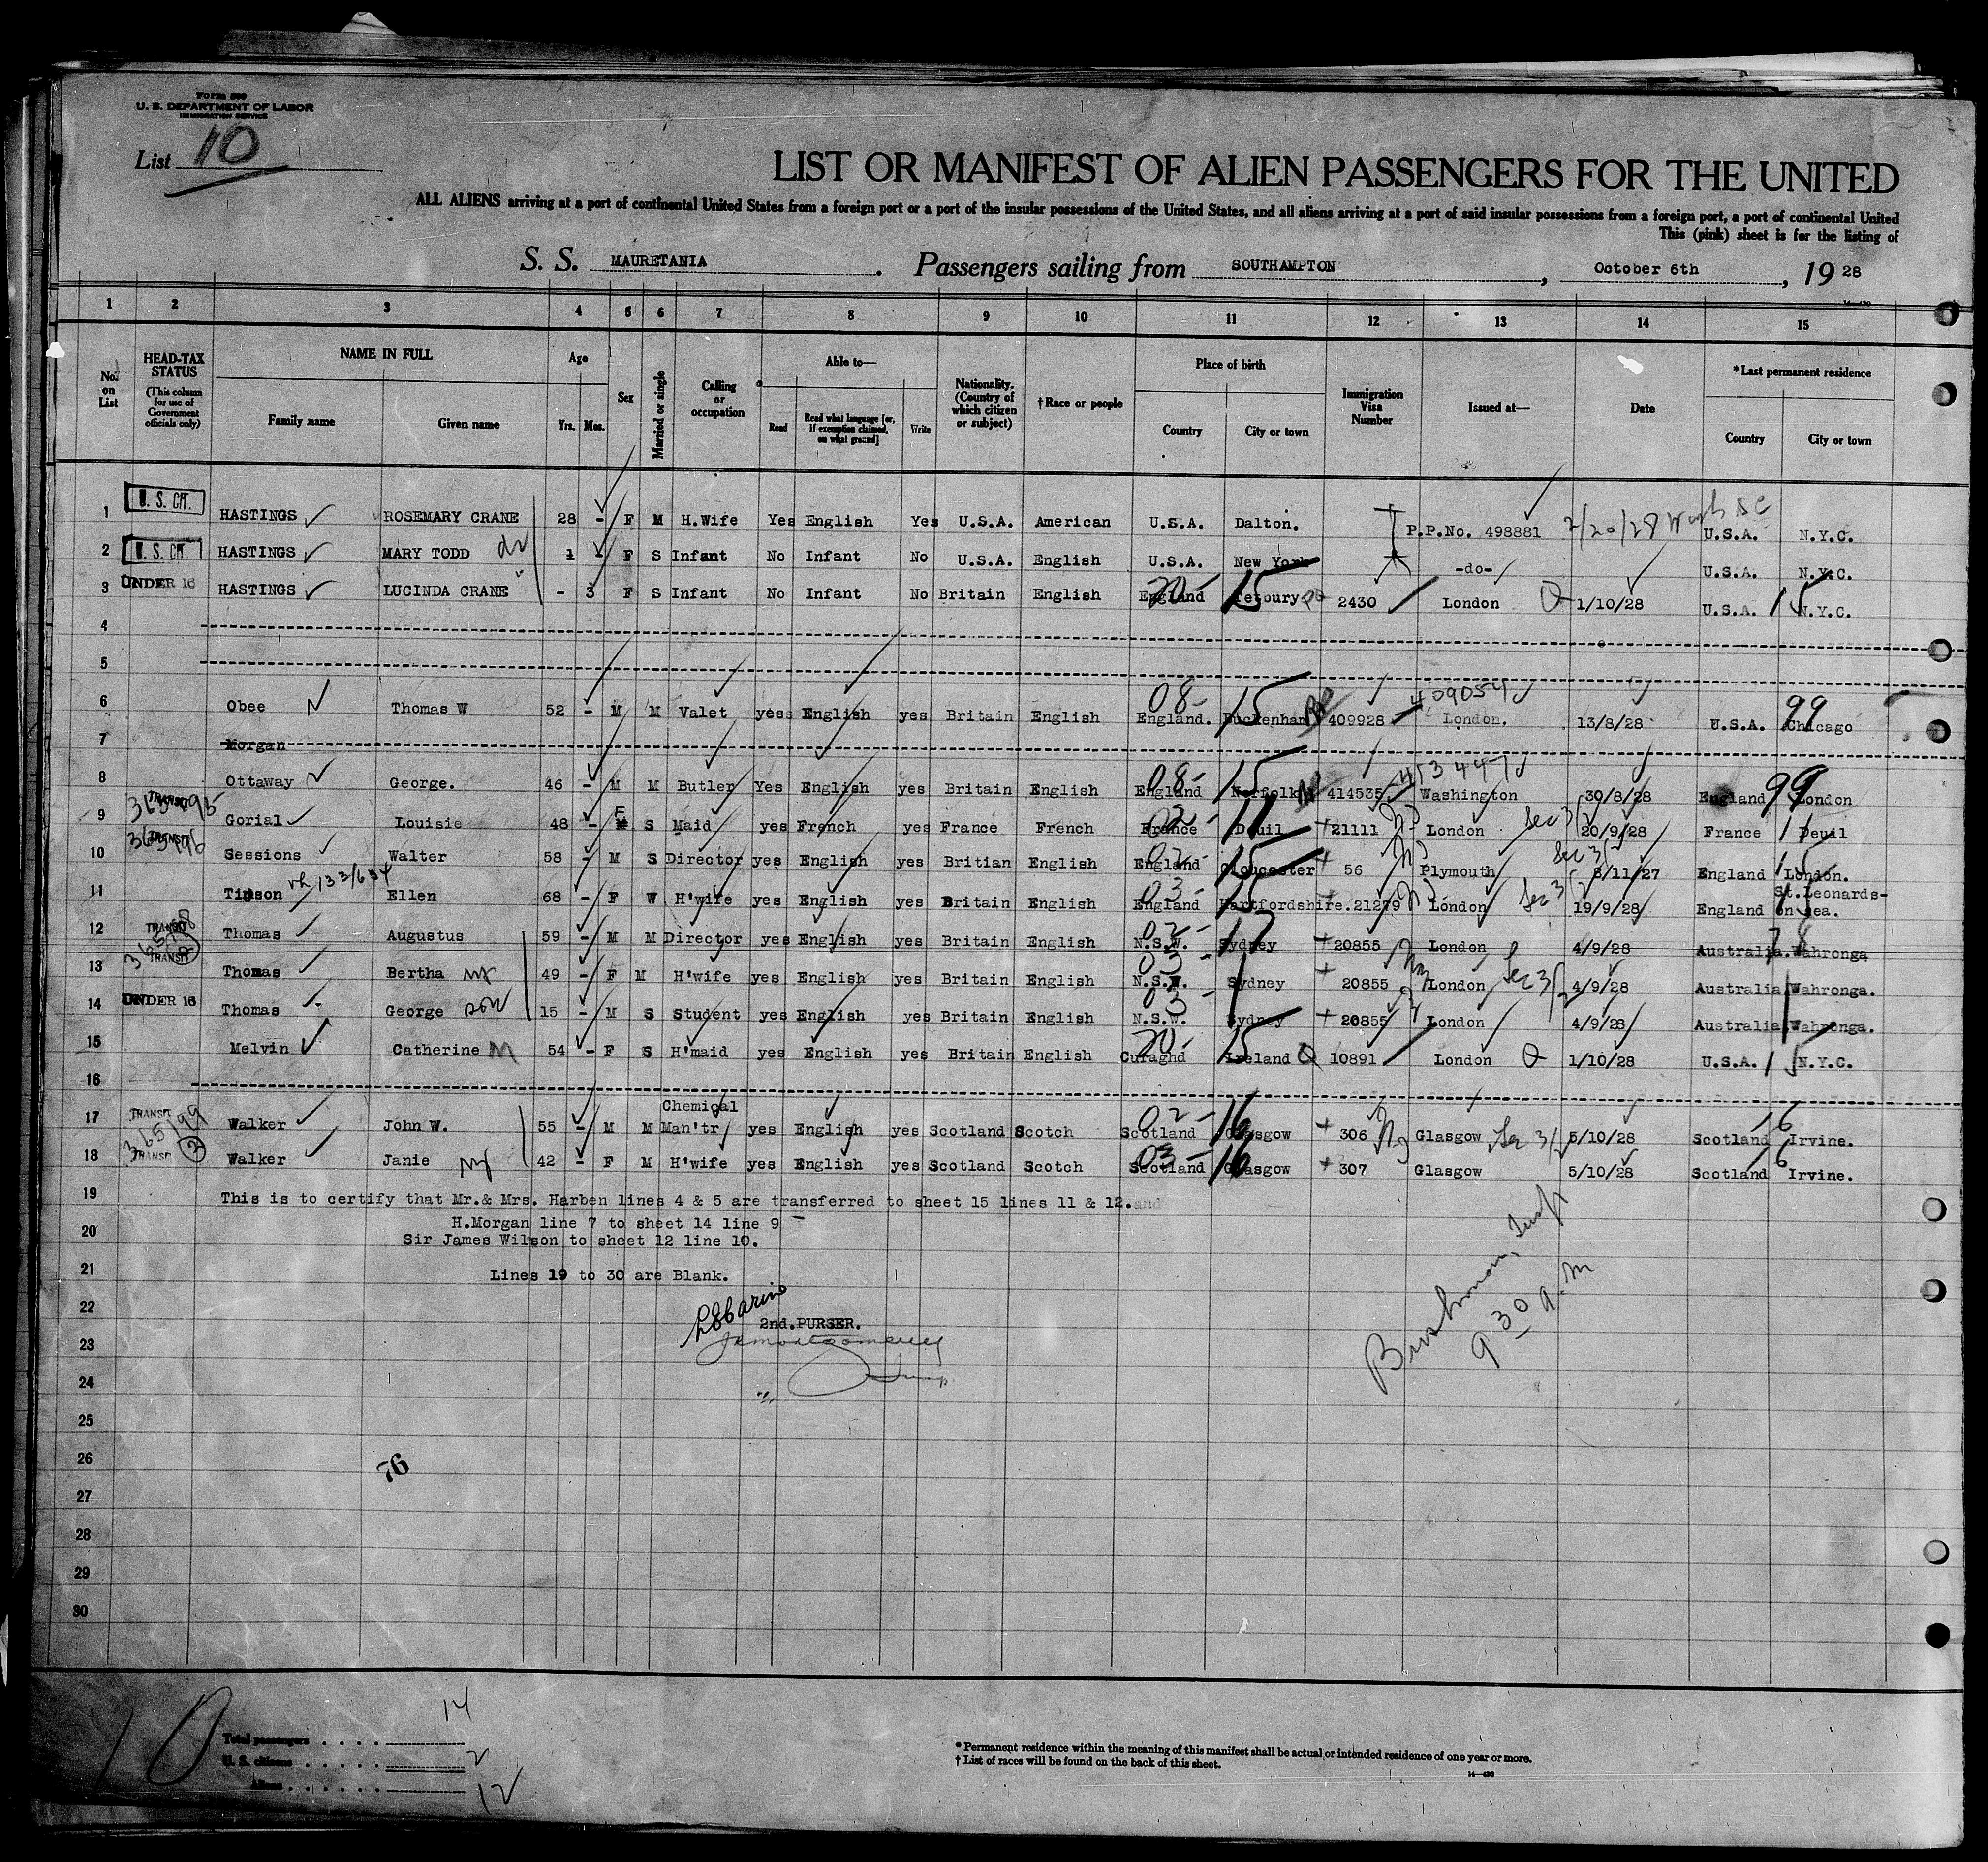 Form 500
U. S. DEPARTMENT OF LABOR
IMMIGRATION SERVICE
List 10
LIST OR MANIFEST OF ALIEN PASSENGERS FOR THE UNITED
ALL ALIENS arriving at a port of continental United States from a foreign port or a port of the insular possessions of the United States, and all aliens arriving at a port of said insular possessions from a foreign port, a port of continental United
This (pink) sheet is for the listing of
S. S. MAURETANIA. Passengers sailing from SOUTHAMPTON, October 6th, 19 28
1 2 3 4 5 6 7 8 9 10 11 12 13 14 15
No. on List
HEAD-TAX STATUS
(This column for use of Government officials only)
NAME IN FULL
Family name Given name
Age
Yrs. Mos.
Sex
Married or single
Calling or occupation
Able to—
Read Read what language [or, if exemption claimed, on what ground] Write
Nationality. (Country of which citizen or subject)
†Race or people
Place of birth
Country City or town
Immigration Visa Number
Issued at—
Date
*Last permanent residence
Country City or town
1 U. S. CIT. HASTINGS ROSEMARY CRANE 28 - F M H.Wife Yes English Yes U.S.A. American U.S.A. Dalton. P.P.No. 498881 2/20/28 Wash DC U.S.A. N.Y.C.
2 U. S. CIT HASTINGS MARY TODD dr 1 - F S Infant No Infant No U.S.A. English U.S.A. New York -do- U.S.A. N.Y.C.
3 UNDER 16 HASTINGS LUCINDA CRANE - 3 F S Infant No Infant No Britain English England 20- 15 Tetbury 2430 London 1/10/28 U.S.A. 15 N.Y.C.
4
5
6 Obee Thomas W 52 - M M Valet yes English yes Britain English England. 08- 15 Buckenham 409928 409054 London. 13/8/28 U.S.A. 99 Chicago
7 Morgan
8 Ottaway George. 46 - M M Butler Yes English yes Britain English England 08- 15 Norfolk 414535 413447 Washington 30/8/28 England 99 London
9 TRANSIT 365195 Gorial Louisie 48 - F S Maid yes French yes France French France 02- 11 Deuil 21111 London Sec 3/2 20/9/28 France 11 Deuil
10 TRANSIT 365196 Sessions Walter 58 - M S Director yes English yes Britian English England 02- 15 Gloucester 56 Plymouth Sec 3/2 8/11/27 England 15 London.
11 Timson 133/634 Ellen 68 - F W H'wife yes English yes Britain English England 03- 15 Hartfordshire. 21279 London Sec 3/2 19/9/28 England St.Leonards- on Sea.
12 TRANSIT Thomas Augustus 59 - M M Director yes English yes Britain English N.S.W. 02- 17 Sydney 20855 London 4/9/28 Australia. 78 Wahronga
13 TRANSIT Thomas Bertha 49 - F M H'wife yes English yes Britain English N.S.W. 03- Sydney 20855 London Sec 3/2 4/9/28 Australia Wahronga.
14 UNDER 16 Thomas George son 15 - M S Student yes English yes Britain English N.S.W. 03- Sydney 20855 London 4/9/28 Australia Wahronga.
15 Melvin Catherine 54 - F S H'maid yes English yes Britain English Curaghd 20- 15 Ireland 10891 London 1/10/28 U.S.A. 15 N.Y.C.
16
17 TRANSIT 365199 Walker John W. 55 - M M Chemical Man'tr yes English yes Scotland Scotch Scotland 02- 16 Glasgow 306 Glasgow Sec 3/2 5/10/28 Scotland 16 Irvine.
18 TRANSIT 2 Walker Janie 42 - F M H'wife yes English yes Scotland Scotch Scotland 03- 16 Glasgow 307 Glasgow 5/10/28 Scotland 16 Irvine.
19 This is to certify that Mr.& Mrs. Harben lines 4 & 5 are transferred to sheet 15 lines 11 & 12.and
H.Morgan line 7 to sheet 14 line 9
20 Sir James Wilson to sheet 12 line 10.
21 Lines 19 to 30 are Blank.
22 2nd.PURSER.
23
24
25
26 76
27
28
29
30
9 30 a.m
10
Total passengers . . . . 14
U. S. citizens . . . . . 2
Aliens . . . . . . 12
* Permanent residence within the meaning of this manifest shall be actual or intended residence of one year or more.
† List of races will be found on the back of this sheet.
14—430